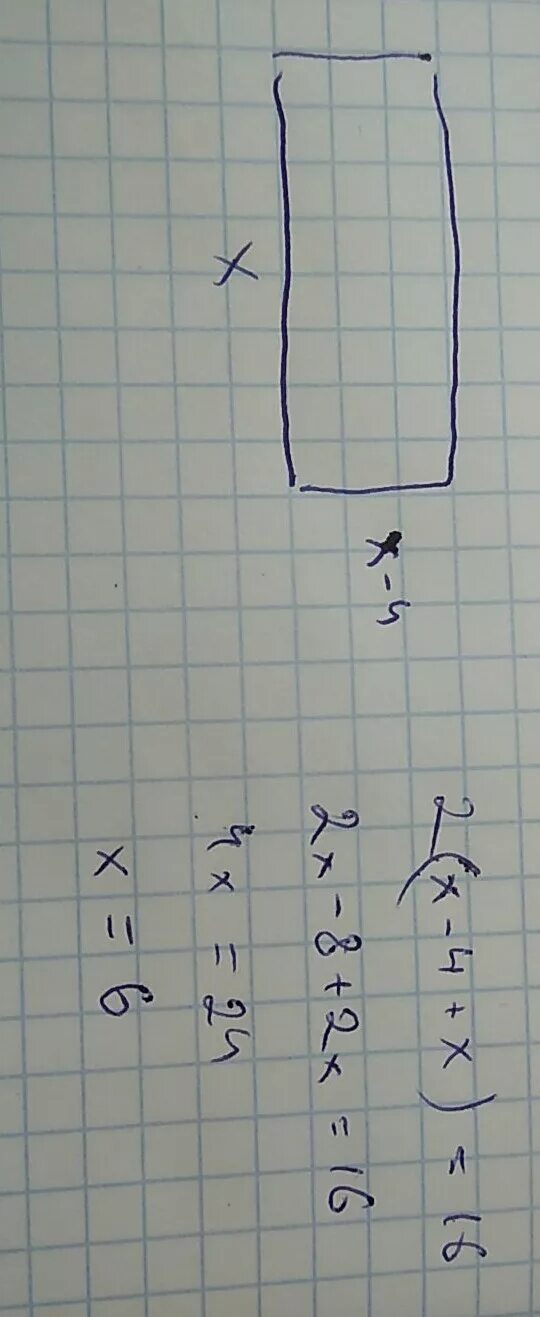 x
x-4
2(x-4+x)=16
2x-8+2x=16
4x=24
x=6